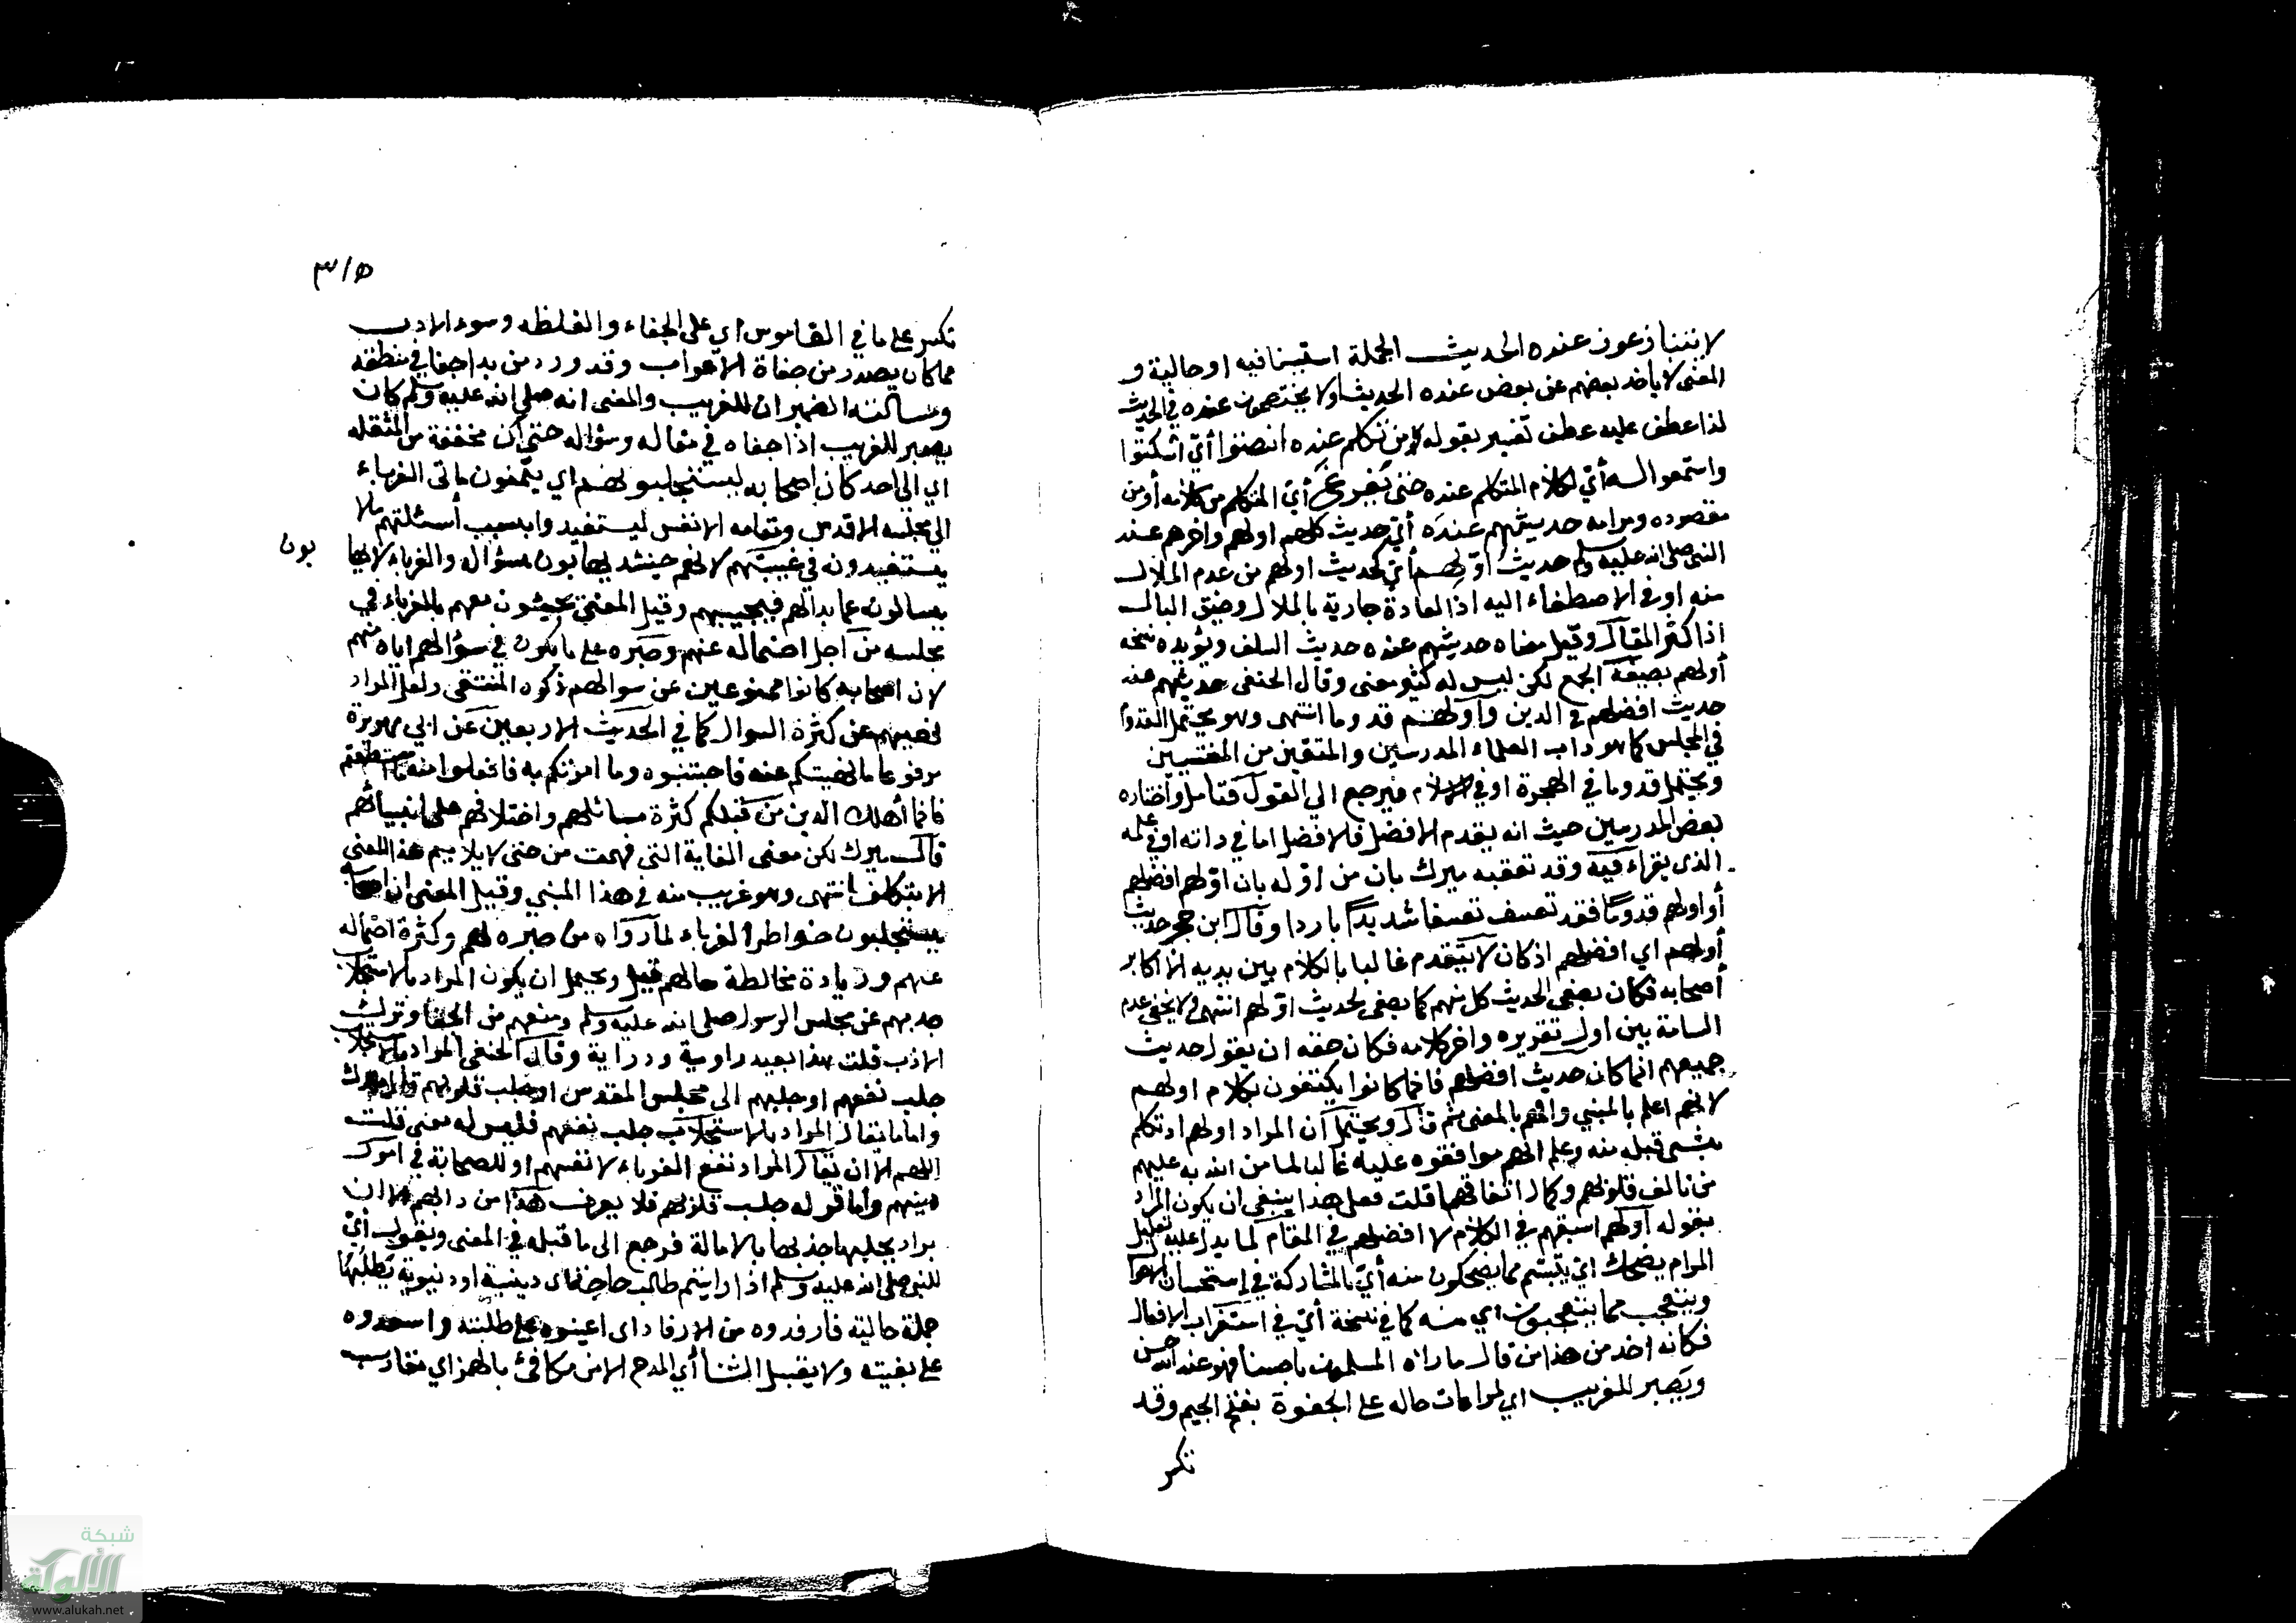 لا يتنازعون عنده الحديث الجملة استينافيه او حالية و
المعنى لا ياخذ بعضهم عن بعض عنده الحديث اولا يختصمون عنده في الحديث
لذا عطف عليه عطف تفسير بقوله ومن تكلم عنده انصتوا أي اسكتوا
واستمعوا له أي لكلام المتكلم عنده حتى يفرغ أي المتكلم من كلامه أو من
مقصوده ومرامه حديثهم عنده أي حديث كلهم اولهم واخرهم عند
النبي صلى الله عليه وسلم حديث اولهم أي كحديث اولهم من عدم الملال
منه او في الاصطغاء اليه اذ العادة جارية بالملال وضيق البال
اذا كثر المقال وقيل معناه حديثهم عنده حديث السلف وتؤيده نسخه
أولهم بصيغة الجمع لكن ليس له كثير معنى وقال الحنفي حديثهم عنده
حديث افضلهم في الدين وأولهم قدوما انتهى وهو يحتمل القدوم
في المجلس كما هو داب العلماء المدرسين والمتقين من المفتيين
ويحتمل قدوما في الهجرة او في الاسلام فيرجع الي القول فتامل واختاره
بعض المدرسين حيث انه يقدم الافضل فالافضل اما في ذاته او في علمه
الذي يقراء فيه وقد تعقبه ميرك بان من اوله بان اولهم افضلهم
أو اولهم قدوما فقد تعسف تعسفا شديدًا باردا وقال ابن حجر حديث
أولهم اي افضلهم اذ كان لا يتقدم غالبا بالكلام بين يديه الا اكابر
أصحابه فكان يصغي لحديث كل منهم كما يصغي لحديث اولهم انتهى ولا يخفى عدم
المسامة بين اول تقريره واخر كلامه فكان حقه ان يقول حديث
جميعهم انما كان حديث افضلهم فانما كانوا يكتفون بكلام اولهم
لانهم اعلم بالمبني وافهم بالمعنى ثم قال ويحتمل أن المراد اولهم اذ تكلم
بشي قبله منه وعلم انهم موافقوه عليه غالبا لما من الله به عليهم
من تالف قلوبهم وكمال اتفاقهم قلت فعلى هذا ينبغي ان يكون المراد
بقوله أولهم اسبقهم في الكلام لا افضلهم في المقام كما يدل عليه تعليل
المرام يضحك اي يتبسم مما يضحكون منه أي بالمشاركة في استحسان
ويتعجب مما يتعجبون اي منه كما في نسخة أي في استغراب الافعال
فكانه اخذ من هذا من قال ما راه المسلمون حسنا فهو عند الله حسن
ويصبر للغريب اي لمراعات حاله على الجفوة بفتح الجيم وقد
تكسر
٣/٥
تكسر على ما في القاموس اي على الجفاء والغلظه وسوء الادب
مما كان يصدر من جفاة الاعراب وقد ورد من بدا جفا في منطقه
ومسالته الضميران للغريب والمعنى انه صلى الله عليه وسلم كان
يصبر للغريب اذا جفاه في مقاله وسؤاله حتى ان مخففة من المثقله
اي الى حد كان اصحابه ليستجلبونهم اي يتمنون ماتى الغرباء
الي مجلسه الاقدس ومقامه الانفس ليستفيدوا بسبب أسئلتهم ما لا
يستفيدونه في غيبتهم لانهم حينئذ يهابون سؤاله والغرباء لا يها
بون
يسالون عما بدا لهم فيجيبهم وقيل المعنى يجيئون معهم بالغرباء في
مجلسه من أجل احتماله عنهم وصبره على ما يكون في سؤالهم اياه منهم
لان اصحابه كانوا ممنوعين عن سوالهم ذكره المنتقى ولعل المراد
نهيهم عن كثرة السوال كما في الحديث الاربعين عن ابي هريرة
مرفوعا ما نهيتكم عنه فاجتنبوه وما امرتكم به فافعلوا منه ما استطعتم
فانما أهلك الذين من قبلكم كثرة مسائلهم واختلافهم على انبيائهم
قال ميرك لكن معنى الغاية التي فهمت من حتى لا يلايم هذا المعنى
الا بتكلف انتهى وهو غريب منه في هذا المبنى وقيل المعنى ان اصحابه
يستجلبون خواطر الغرباء لما رأوا من صبره لهم وكثرة احتماله
عنهم وزيادة مخالطة حالهم قيل ويحتمل ان يكون المراد بالاستجلاب
جذبهم عن مجلس الرسول صلى الله عليه وسلم ومنعهم من الجفا وترك
الادب قلت هذا بعيد راوية ودراية وقال الحنفي المراد بالاستجلاب
جلب نفعهم او جلبهم الى مجلس المقدس او جلب قلوبهم قال ميرك
واما ما يقال المراد بالاستجلاب جلب نفعهم فليس له معنى قلت
اللهم الا ان يقال المراد نفع الغرباء لانفسهم او للصحابة في امور
دينهم وأما قوله جلب قلوبهم فلا يعرف هذا من دابهم الا ان
يراد بجلبها جذبها بالامالة فرجع الى ما قبله في المعنى ويقول أي
النبي صلى الله عليه وسلم اذا رايتم طالب حاجة اي دينية او دنيوية يطلبها
جملة حالية فارفدوه من الارفاد اي اعينوه على طلبته واسعدوه
على بغيته ولا يقبل الثنا أي المدح الا من مكافئ بالهمز اي مقارب
شبكة
الألوكة
www.alukah.net